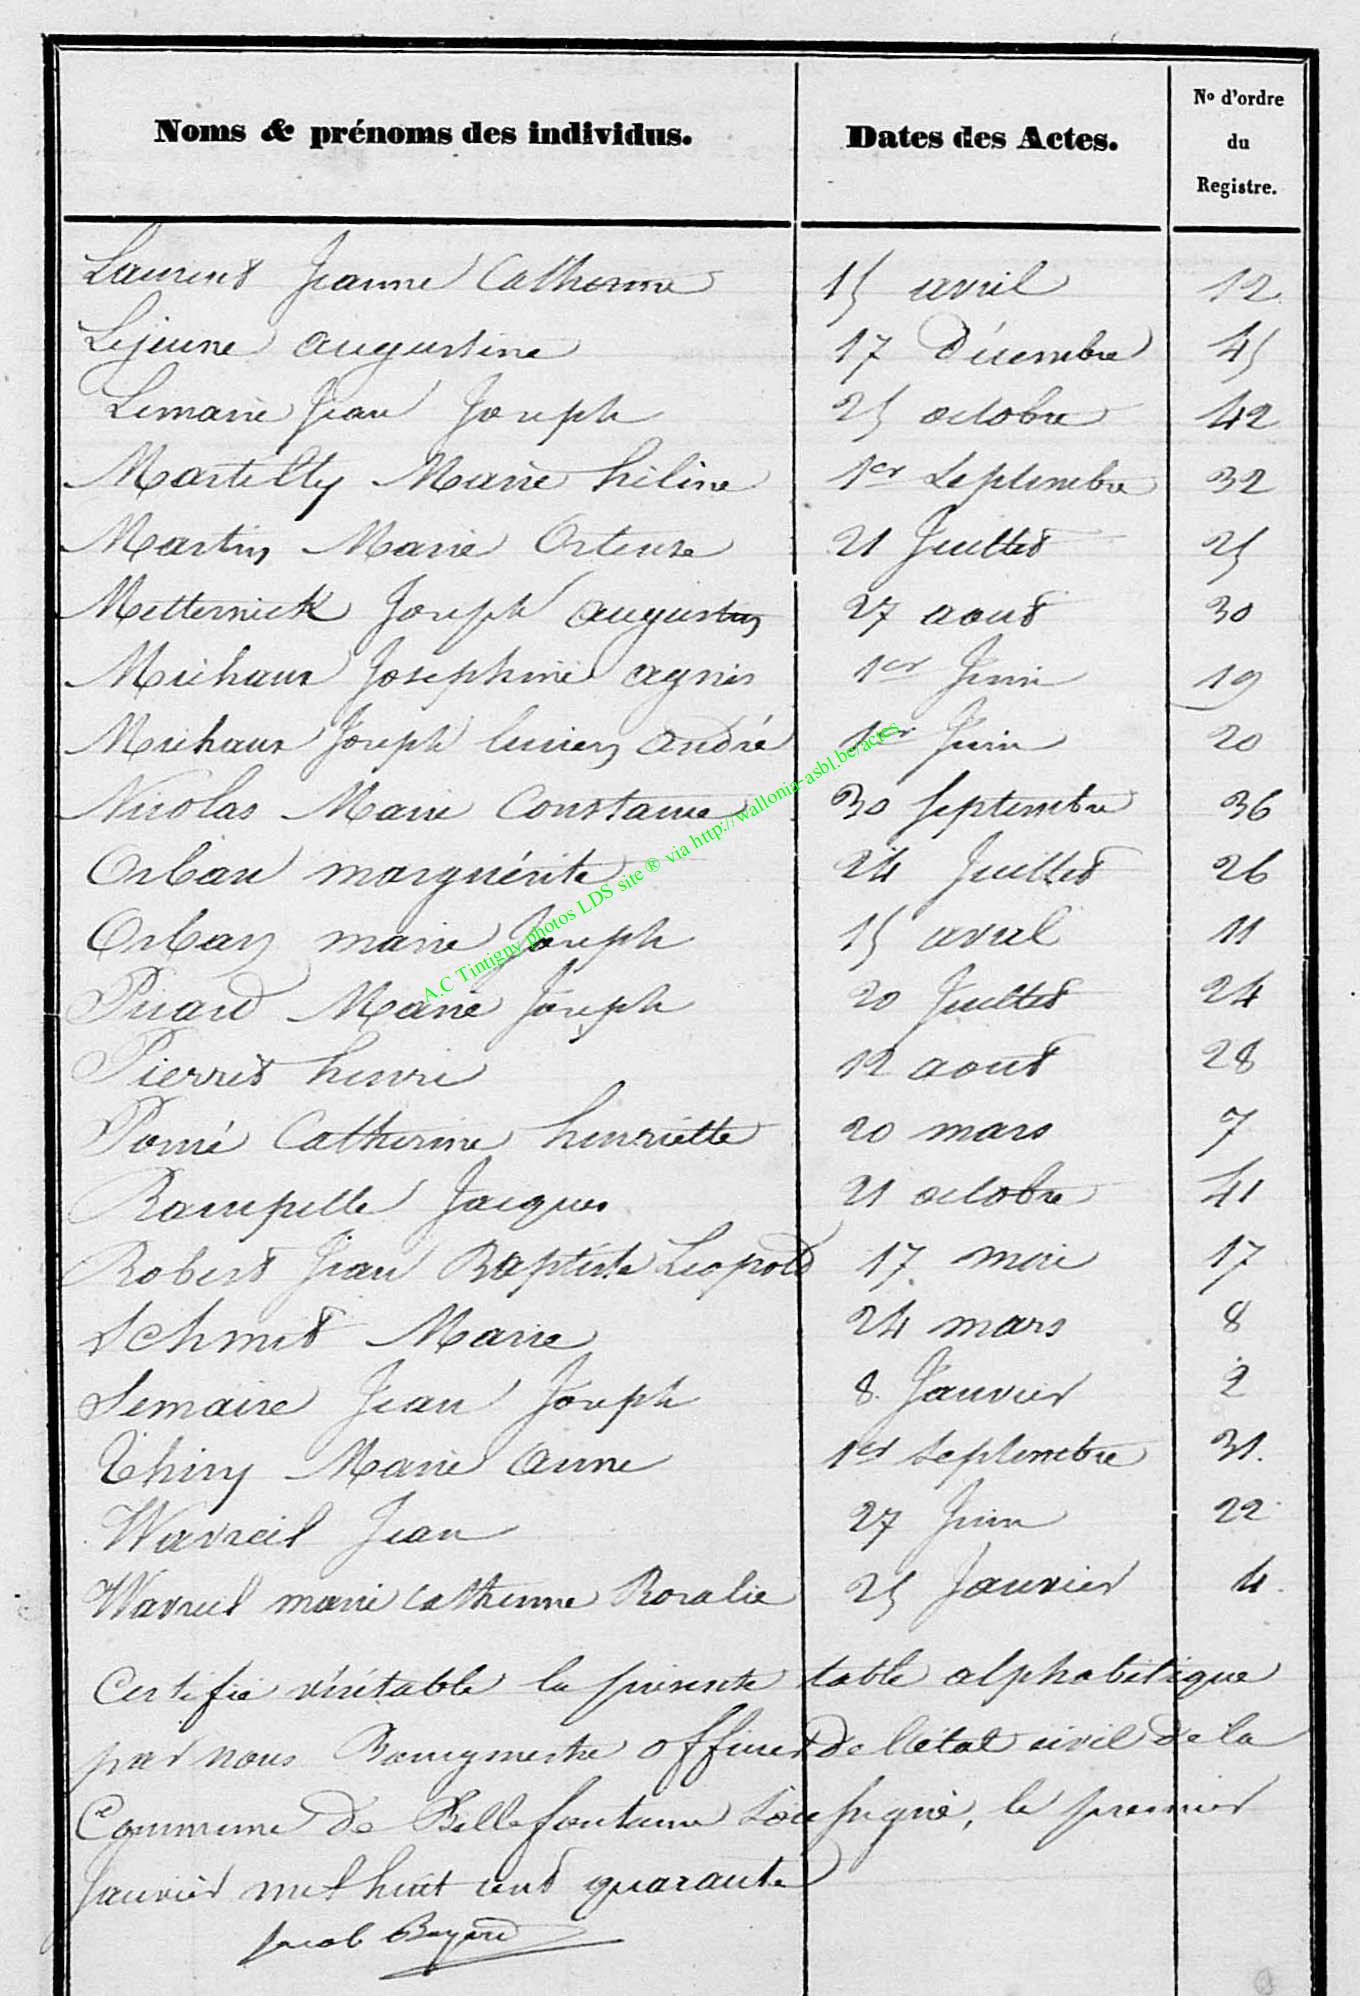 Noms & prénoms des individus. Dates des Actes. No d'ordre du Registre.
Laurent Jeanne Catherine 15 avril 12
Lejeune augustine 17 Décembre 45
Lemaire Jean Joseph 25 octobre 42
Martilly Marie hélène 1er Septembre 32
Martin Marie Ortense 21 Juillet 25
Metternick Joseph augustin 27 aout 30
Michaux Josephine agnès 1er Juin 19
Michaux Joseph lucien andré 1er Juin 20
Nicolas Marie Constance 30 Septembre 36
Orban marguérite 24 Juillet 26
Orban marie Joseph 15 avril 11
Picard Marie Joseph 20 Juillet 24
Pierret henri 12 aout 28
Pomé Catherine henriette 20 mars 7
Rampelle Jacques 21 octobre 41
Robert Jean Baptiste Leopold 17 mai 17
Schmit Marie 24 mars 8
Semaire Jean Joseph 8 Janvier 2
Thiry Marie anne 1er Septembre 31.
Wavreil Jean 27 Juin 22
Wavreil marie catherine Rosalie 25 Janvier 4.
Certifié véritable la présente table alphabétique
par nous Bourgmestre officier de l'état civil de la
Commune de Bellefontaine Soussigné, le premier
Janvier mil huit cent quarante
Jacob Bayard
A.C Tintigny photos LDS site ® via http://wallonia-asbl.be/actes